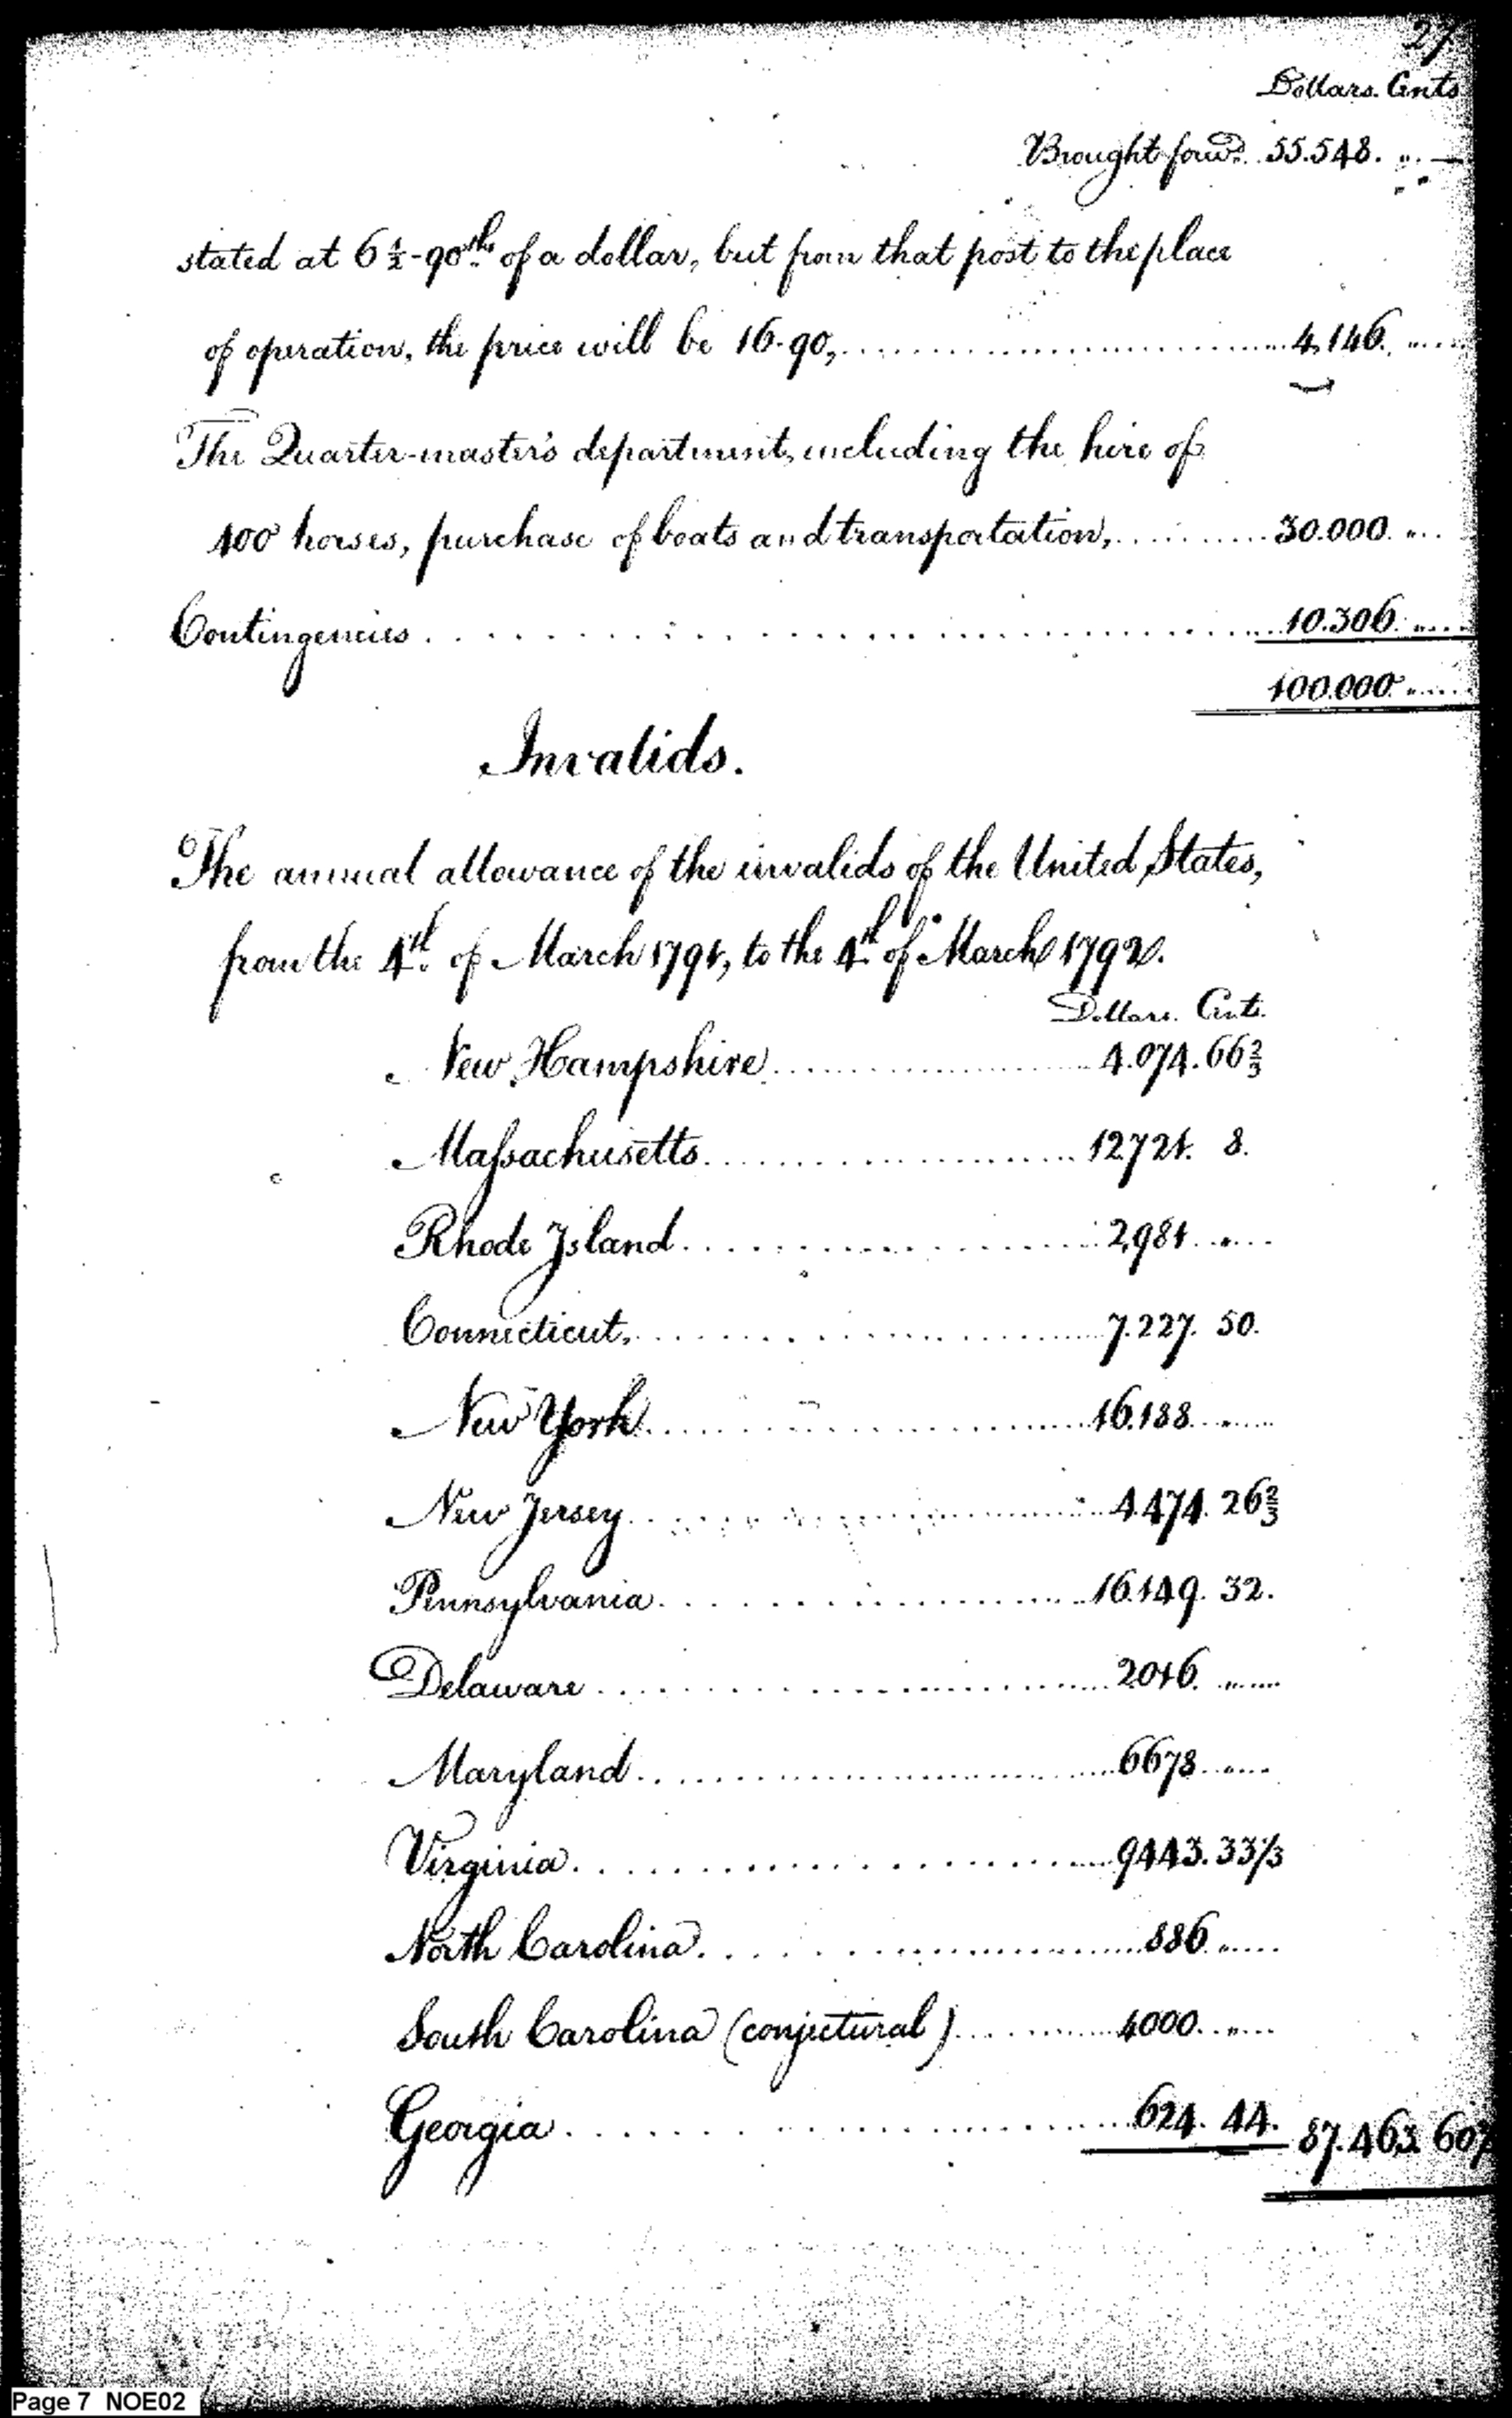 27
Dollars. Cents
Brought forwd. 55.548. ,,. —
stated at 6½-90ths of a dollar, but from that post to the place
of operation, the price will be 16-90, 4,146. ,,
The Quarter-master's department, including the hire of
100 horses, purchase of boats and transportation, 30.000. ,,
Contingencies 10.306. ,,
100.000. ,,
Invalids.
The annual allowance of the invalids of the United States,
from the 4th of March 1791, to the 4th of March 1792.
Dollars. Cents.
New Hampshire 4.074. 66⅔
Massachusetts 12721. 8.
Rhode Island 2,981 ,,
Connecticut, 7.227. 50.
New York 16.188. ,,
New Jersey 4.474. 26⅔
Pennsylvania 16.149. 32.
Delaware 2016. ,,
Maryland 6678 ,,
Virginia 9443. 33⅓
North Carolina 886. ,,
South Carolina (conjectural) 4000. ,,
Georgia 624. 44. 87.463. 60
Page 7 NOE02